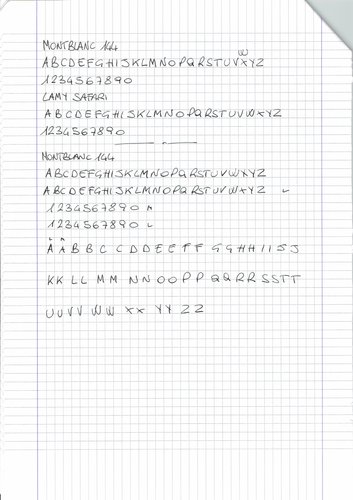 MONTBLANC 144
W
ABCDEFGHIJKLMNOPQRSTUVXYZ
1234567890
LAMY SAFARI
ABCDEFGHIJKLMNOPQRSTUVWXYZ
1234567890
MONTBLANC 144
ABCDEFGHIJKLMNOPQRSTUVWXYZ
ABCDEFGHIJKLMNOPQRSTUVWXYZ L
1234567890 M
1234567890 L
L M
A A B B C C D D E E F F G G H H I I J J
K K L L M M N N O O P P Q Q R R S S T T
U U V V W W X X Y Y Z Z